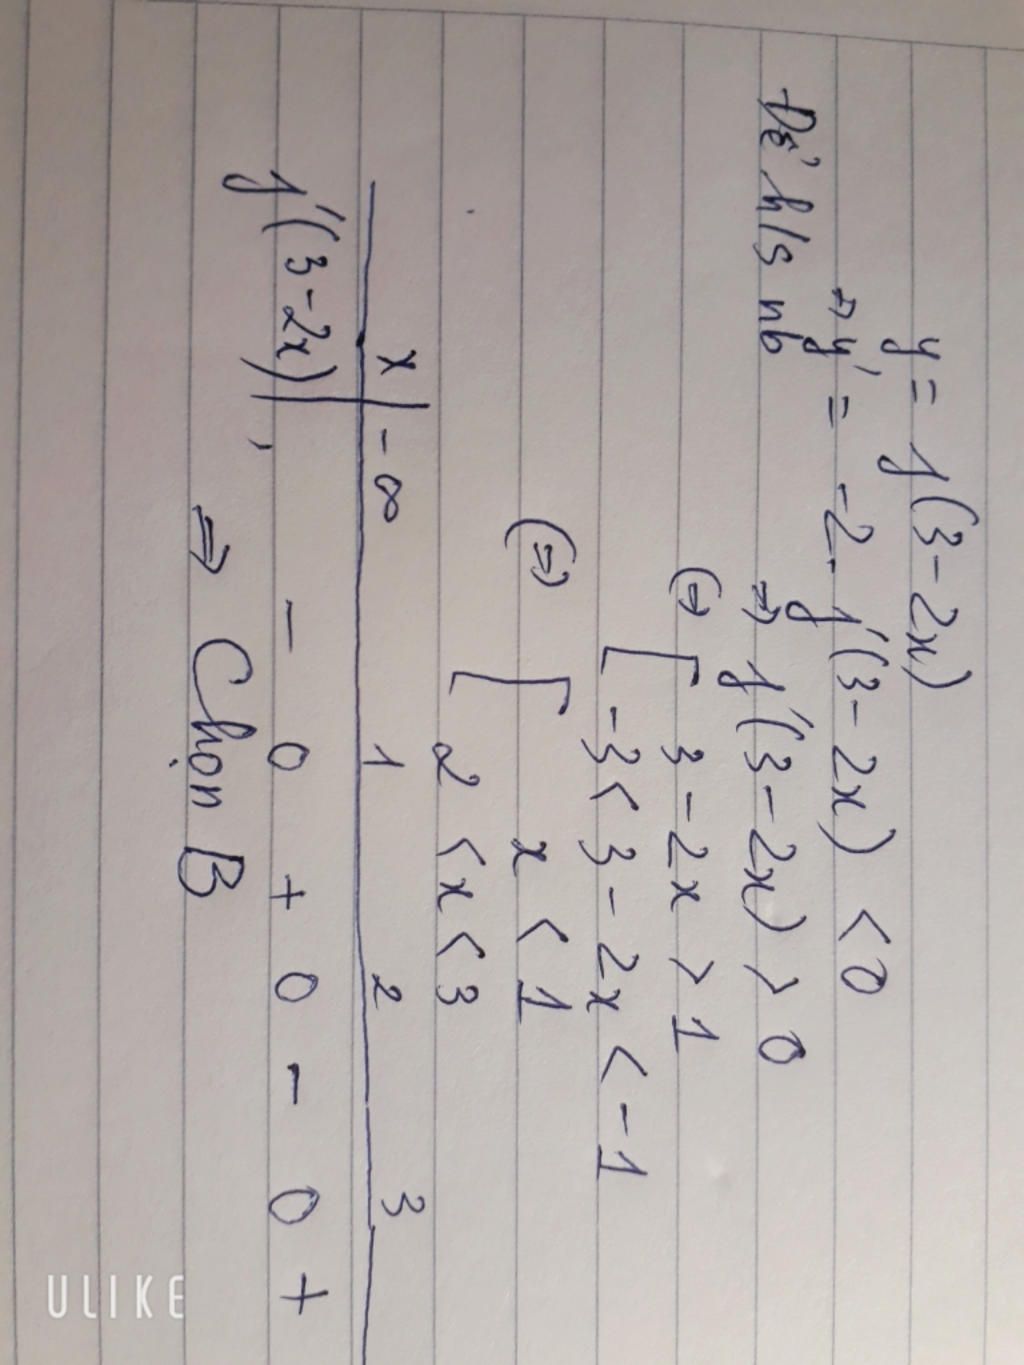 y = f(3-2x)
⇒ y' = -2. f'(3-2x) < 0
Để h/s nb
⇒ f'(3-2x) > 0
(=) [ 3-2x > 1
-3 < 3-2x < -1
(=) [ x < 1
2 < x < 3
x | -∞ 1 2 3
f'(3-2x) | - 0 + 0 - 0 +
⇒ Chọn B
ULIKE